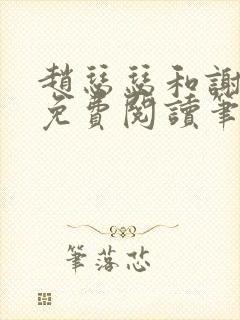 趙瑟瑟和謝
免費閱讀筆
筆落芯